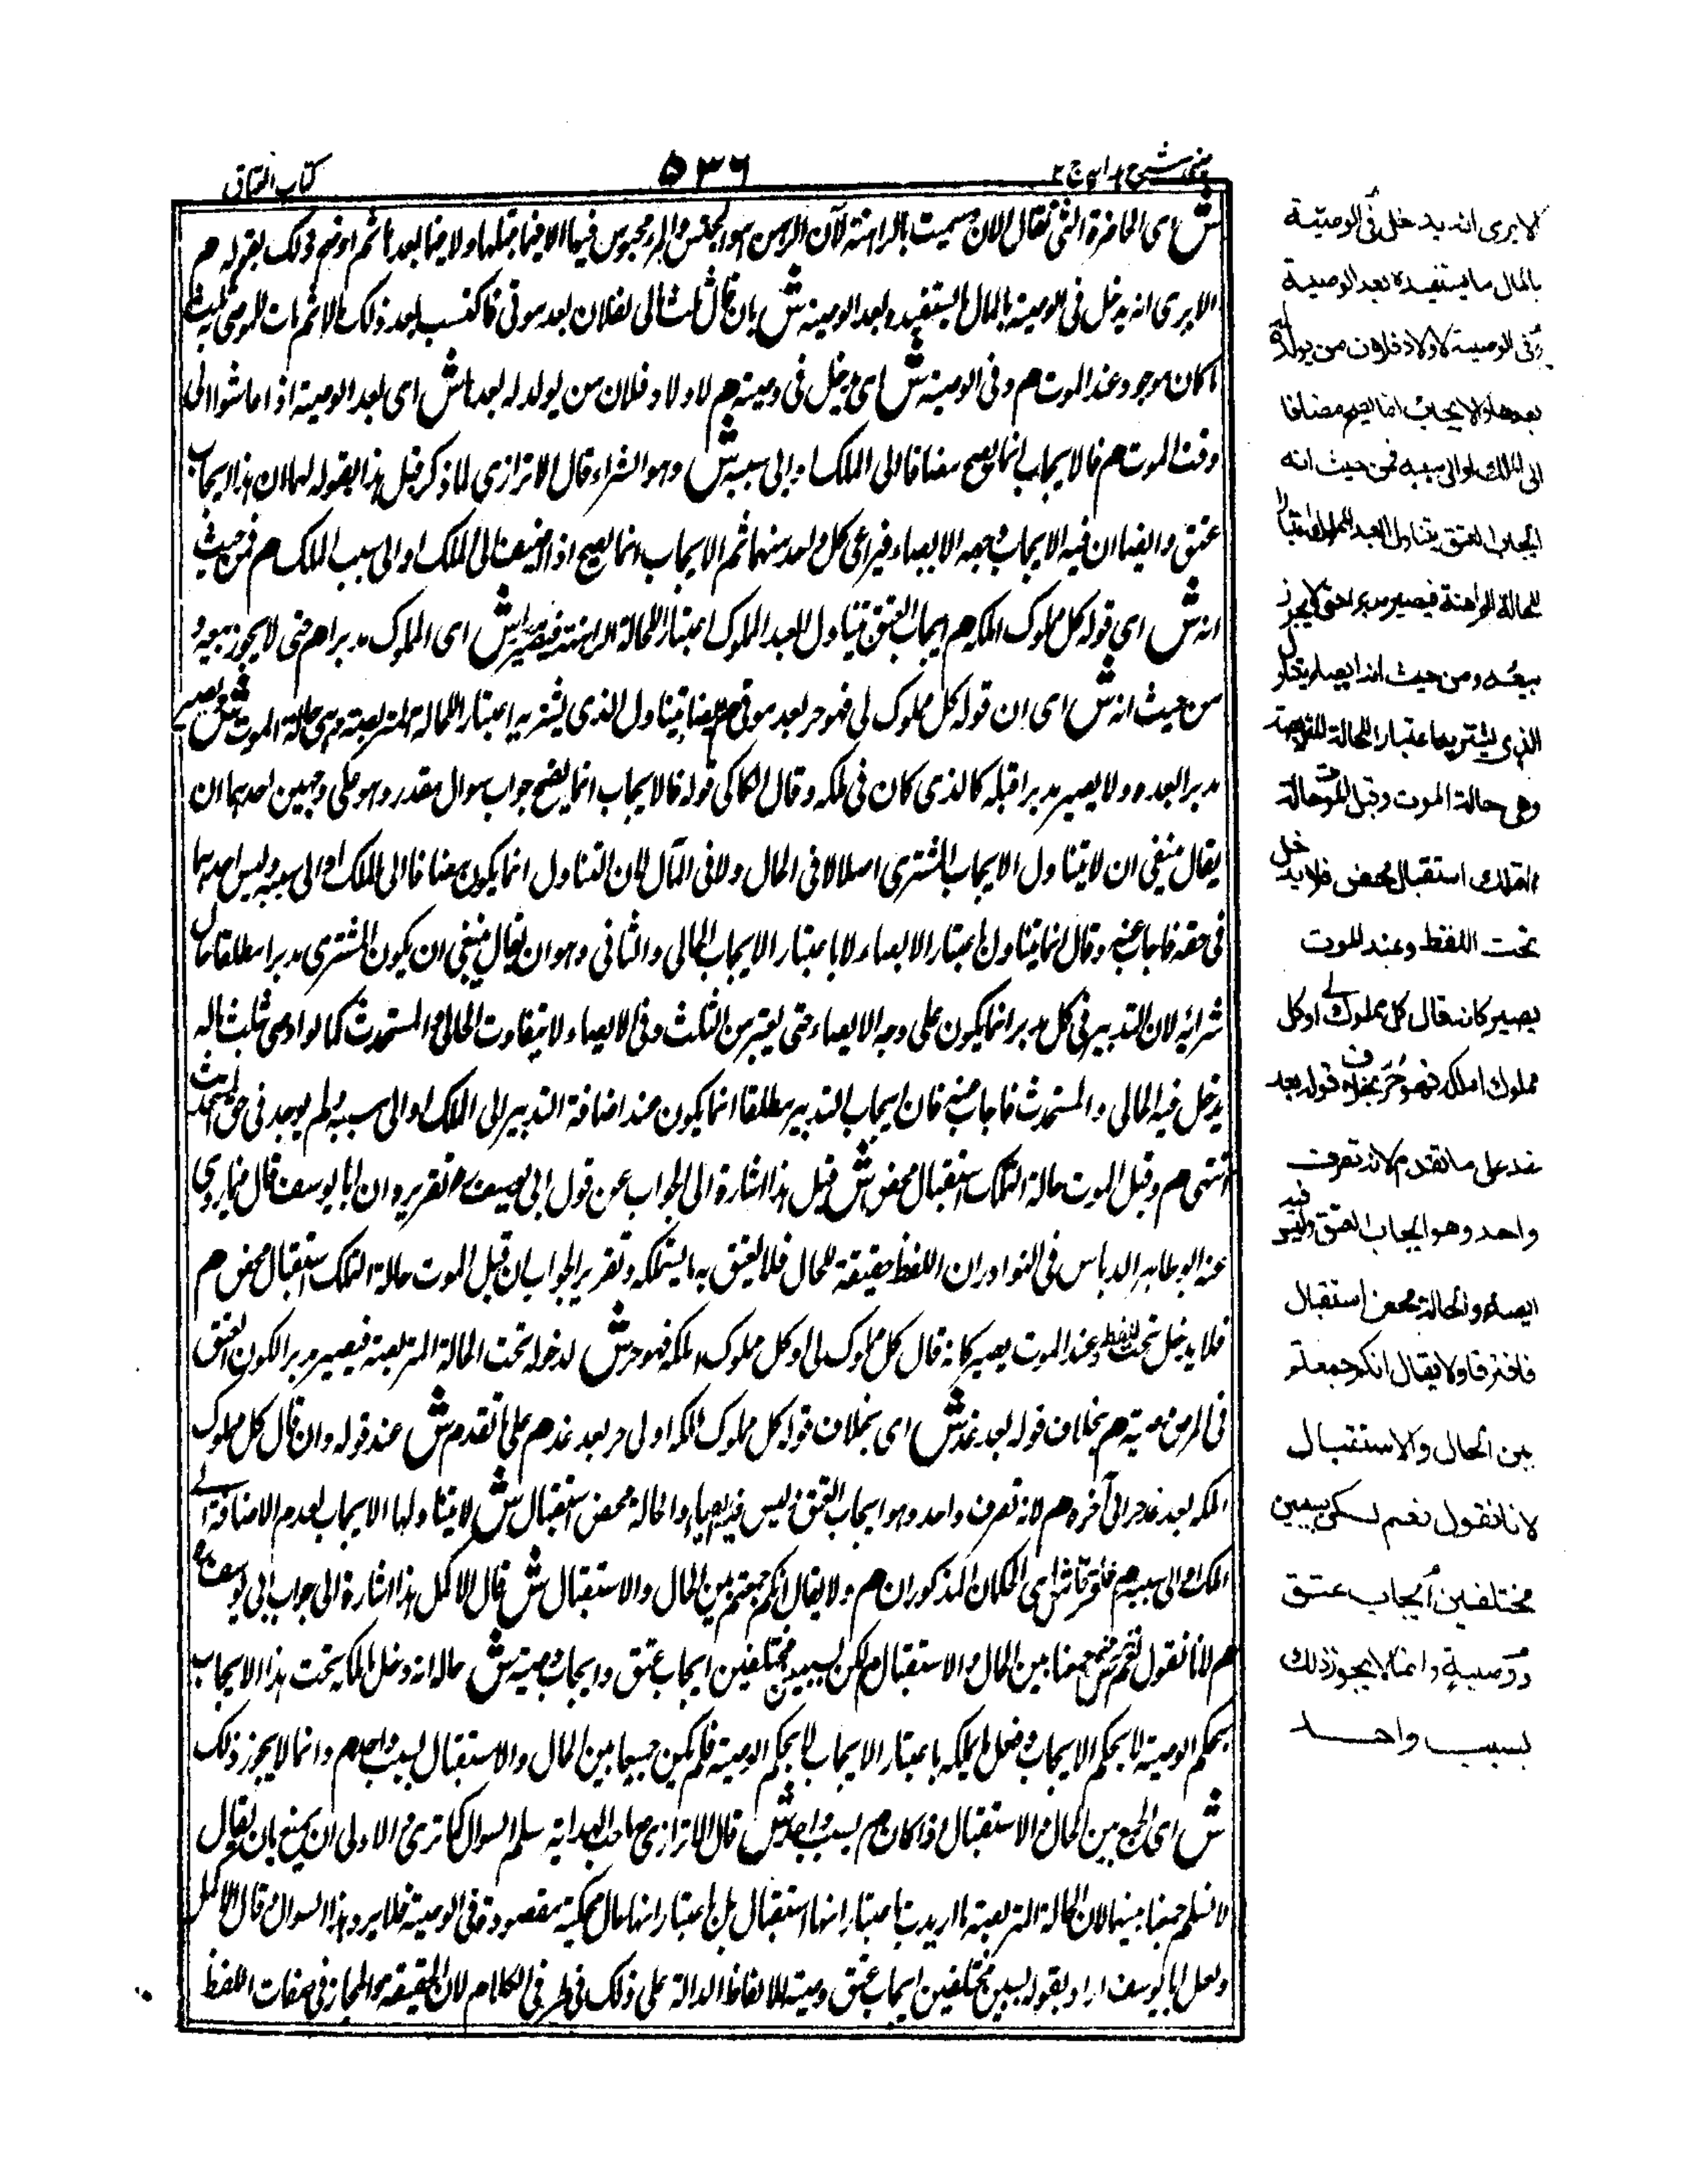 كتاب العتاق
٥٣٦
ش اى الحاضرة التى يقال الآن وسميت بالراهنة لان الرهن هو الحبس والمرء محبوس فيها لا فيما قبلها ولا فيما بعدها ثم اوضح ذلك بقوله م
الا يرى انه يدخل فى الوصية بالمال ما يستفيده بعد الوصية ش بان قال ثلث مالى لفلان بعد موتى فاكتسب بعد ذلك مالا ثم مات للموصى ثلث
ما كان موجود عند الموت م وفى الوصية ش اى يدخل فى وصيته م لاولاد فلان من يولد له بعدها ش اى بعد الوصية اذا عاشوا الى
وقت الموت م فالايجاب انما يصح مضافا الى الملك او الى سببه ش وهو الشراء قال الاترازى لما ذكر قبل هذا بقوله لهما ان هذا ايجاب
عتق وايضا ان فيه الايجاب وجهة الايصاء فيراعى كل واحد منهما ثم الايجاب انما يصح اذا اضيف الى الملك او الى سبب الملك م فمن حيث
انه ش اى قوله كل مملوك املكه م ايجاب العتق يتناول العبد المملوك اعتبارا للحالة الراهنة فيصير مدبرا ش اى المملوك مدبرا م حتى لا يجوز بيعه و
من حيث انه ش اى ان قوله كل مملوك لى فهو حر بعد موتى م ايصاء يتناول الذى يشتريه اعتبارا للحالة المتربصة وهى حالة الموت ش فيصير
مدبرا بعده ولا يصير مدبرا قبله كالذى كان فى ملكه وقال الكاكى قوله فالايجاب انما يصح جواب سوال مقدر وهو على وجهين احدهما ان
يقال ينبغى ان لا يتناول الايجاب المشترى اصلا لا فى الحال ولا فى المآل لان التناول انما يكون مضافا الى الملك او الى سببه وليس احدهما
فى حقه فاجاب عنه وقال انما يتناول باعتبار الايصاء لا باعتبار الايجاب الحالى والثانى وهو ان يقال ينبغى ان يكون المشترى مدبرا مطلقا حال
شرائه لان التدبير فى كل مدبر انما يكون على وجه الايصاء حتى يعتبر من الثلث وفى الايصاء لا يتفاوت الحالى والمستحدث كما لو اوصى بثلث ماله
يدخل فيه الحالى والمستحدث فاجاب عنه فان ايجاب التدبير مطلقا انما يكون عند اضافة التدبير الى الملك او الى سببه ولم يوجد فى حق المستحدث
انتهى م وقبل الموت حالة التملك استقبال محض ش قيل هذا اشارة الى الجواب عن قول ابى يوسف رح تقريره ان ابا يوسف قال فيما روى
عنه ابو طاهر الدباس فى النوادر ان اللفظ حقيقة للحال فلا يعتق به ما يستملكه وتقرير الجواب ان قبل الموت حالة التملك استقبال محض م
فلا يدخل تحت اللفظ وعند الموت يصير كانه قال كل مملوك لى او كل مملوك املكه فهو حر ش لدخوله تحت الحالة المتربصة فيصير مدبرا لكون العتق
فى المرض وصية م بخلاف قوله بعد غد ش اى بخلاف قوله كل مملوك املكه او لى حر بعد غد م على ما تقدم ش عند قوله وان قال كل مملوك
املكه بعد غد حر الى آخره م لانه تصرف واحد وهو ايجاب العتق وليس فيه ايصاء والحالة محض استقبال ش لا يتناولها الايجاب لعدم الاضافة الى
الملك او الى سببه م فافترقا ش اى الحكمان المذكوران م ولا يقال انكم جمعتم بين الحال والاستقبال ش قال الاكمل هذا اشارة الى جواب ابى يوسف رح
م لانا نقول نعم ش جمعنا بين الحال والاستقبال م لكن بسببين مختلفين ايجاب عتق وايجاب وصية ش حاله انه دخل ما يملكه تحت هذا الايجاب
بحكم الوصية لا بحكم الايجاب ودخل ما يملكه باعتبار الايجاب لا بحكم الوصية فلم يكن جمعا بين الحال والاستقبال بسبب واحد م وانما لا يجوز ذلك
ش اى الجمع بين الحال والاستقبال اذا كان م بسبب واحد ش قال الاترازى صاحب الهداية سلم السوال كما ترى والاولى ان يمنع بان يقال
لا نسلم جمعنا بينهما لان الحالة المتربصة ما اريدت باعتبار انها استقبال بل باعتبار انها حال حكمية مقصودة فى الوصية فلا يرد هذا السوال وقال الاكمل
ولعل ابا يوسف اراد بقوله بسببين مختلفين ايجاب عتق وصية الالفاظ الدالة على ذلك فى طرفى الكلام لان الحقيقة والمجاز فى صفات اللفظ
الا يرى انه يدخل فى الوصية
بالمال ما يستفيده بعد الوصية
وفى الوصية لاولاد فلان من يولد له
بعدها والايجاب انما يصح مضافا
الى الملك او الى سببه فمن حيث انه
ايجاب العتق يتناول العبد المملوك اعتبارا
للحالة الراهنة فيصير مدبرا حتى لا يجوز
بيعه ومن حيث انه ايصاء يتناول
الذى يشتريه اعتبارا للحالة المتربصة
وهى حالة الموت وقبل الموت حالة
التملك استقبال محض فلا يدخل
تحت اللفظ وعند الموت
يصير كانه قال كل مملوك لى او كل
مملوك املكه فهو حر بخلاف قوله بعد
غد على ما تقدم لانه تصرف
واحد وهو ايجاب العتق وليس فيه
ايصاء والحالة محض استقبال
فافترقا ولا يقال انكم جمعتم
بين الحال والاستقبال
لانا نقول نعم لكن بسببين
مختلفين ايجاب عتق
ووصية وانما لا يجوز ذلك
بسبب واحد